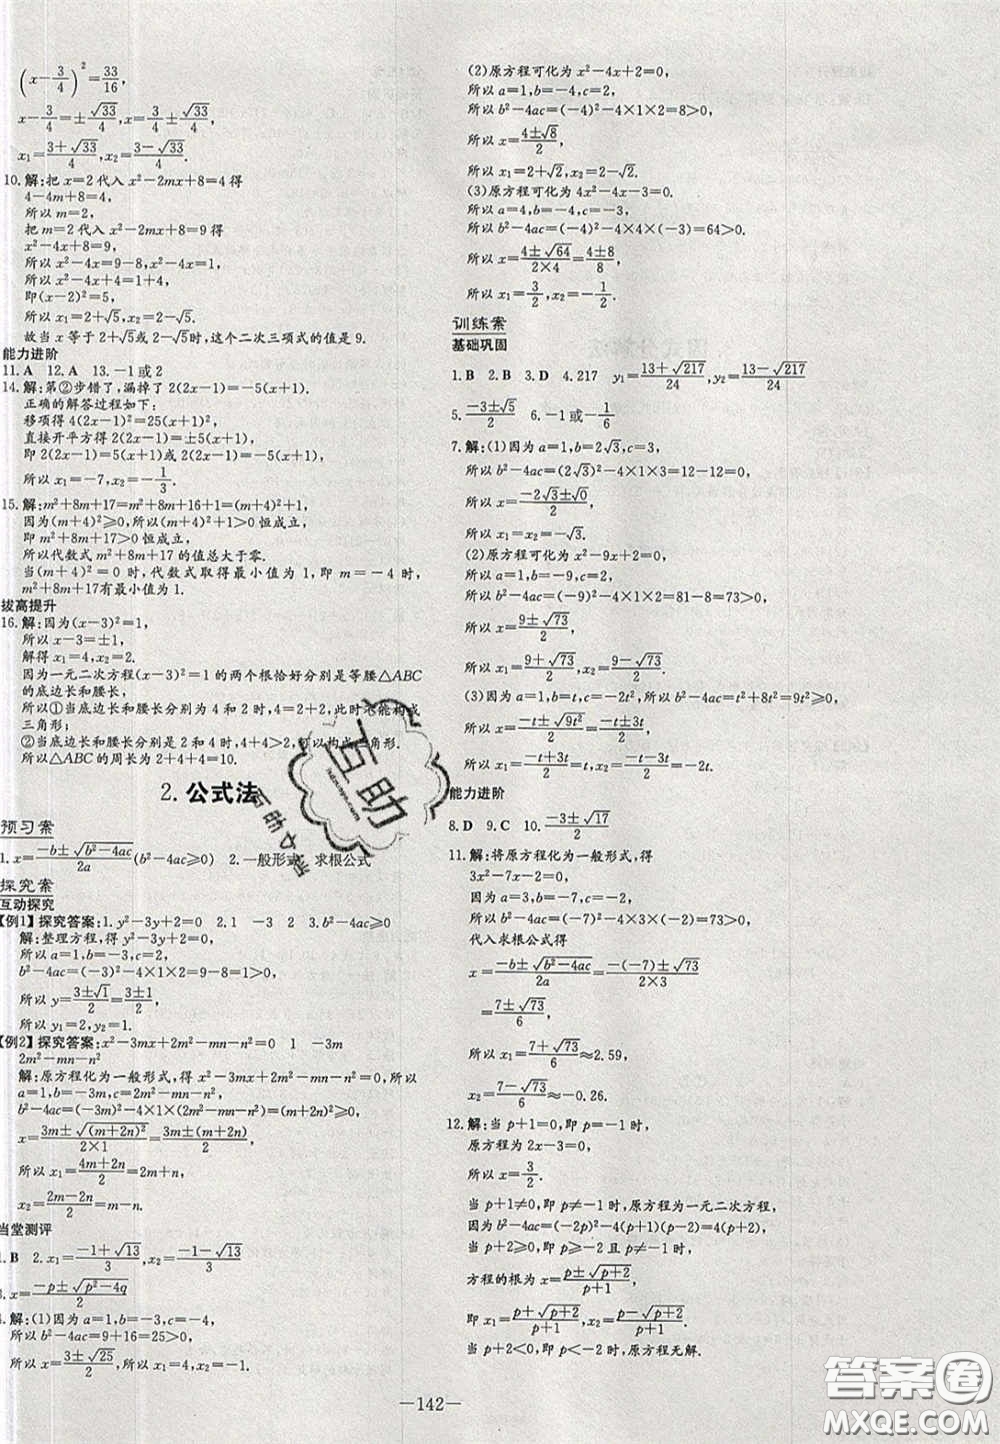 (x-3/4)²=33/16,
x-3/4=±√33/4,x=3/4±√33/4,
x₁=(3+√33)/4,x₂=(3-√33)/4.
10.解:把x=2代入x²-2mx+8=4得
4-4m+8=4,
所以m=2,
把m=2代入x²-2mx+8=9得
x²-4x+8=9,
所以x²-4x=9-8,x²-4x=1,
所以x²-4x+4=1+4,
即(x-2)²=5,
所以x₁=2+√5,x₂=2-√5.
故当x等于2+√5或2-√5时,这个二次三项式的值是9.
能力进阶
11.A 12.A 13.-1或2
14.解:第②步错了,漏掉了2(2x-1)=-5(x+1).
正确的解答过程如下:
移项得4(2x-1)²=25(x+1)²,
直接开平方得2(2x-1)=±5(x+1),
即2(2x-1)=5(x+1)或2(2x-1)=-5(x+1).
所以x₁=-7,x₂=-1/3.
15.解:m²+8m+17=m²+8m+16+1=(m+4)²+1,
因为(m+4)²≥0,所以(m+4)²+1>0恒成立,
即m²+8m+17>0恒成立.
所以代数式m²+8m+17的值总大于零.
当(m+4)²=0时,代数式取得最小值为1,即m=-4时,
m²+8m+17有最小值为1.
拔高提升
16.解:因为(x-3)²=1,
所以x-3=±1,
解得x₁=4,x₂=2.
因为一元二次方程(x-3)²=1的两个根恰好分别是等腰△ABC
的底边长和腰长,
所以①当底边长和腰长分别为4和2时,4=2+2,此时不能构成
三角形;
②当底边长和腰长分别是2和4时,4+4>2,可以构成三角形.
所以△ABC的周长为2+4+4=10.
2.公式法
预习案
1.x=(-b±√(b²-4ac))/2a(b²-4ac≥0) 2.一般形式 求根公式
探究案
互动探究
【例1】探究答案:1.y²-3y+2=0 2.1 -3 2 3.b²-4ac≥0
解:整理方程,得y²-3y+2=0.
所以a=1,b=-3,c=2.
b²-4ac=(-3)²-4×1×2=9-8=1>0,
所以y=(3±√1)/2=(3±1)/2,
所以y₁=2,y₂=1.
【例2】探究答案:x²-3mx+2m²-mn-n²=0 1 -3m
2m²-mn-n²
解:原方程化为一般形式,得x²-3mx+2m²-mn-n²=0,所以
a=1,b=-3m,c=2m²-mn-n².
b²-4ac=(-3m)²-4×1×(2m²-mn-n²)=(m+2n)²≥0,
x=(3m±√(m+2n)²)/(2×1)=(3m±(m+2n))/2.
所以x₁=(4m+2n)/2=2m+n,
x₂=(2m-2n)/2=m-n.
当堂测评
1.B 2.x₁=(-1+√13)/3,x₂=(-1-√13)/3
3.x=(-p±√(p²-4q))/2
4.解:(1)因为a=1,b=-3,c=-4,
所以b²-4ac=9+16=25>0,
所以x=(3±√25)/2,所以x₁=4,x₂=-1.
(2)原方程可化为x²-4x+2=0,
所以a=1,b=-4,c=2,
所以b²-4ac=(-4)²-4×1×2=8>0,
所以x=(4±√8)/2,
所以x₁=2+√2,x₂=2-√2.
(3)原方程可化为4x²-4x-3=0,
所以a=4,b=-4,c=-3,
所以b²-4ac=(-4)²-4×4×(-3)=64>0.
所以x=(4±√64)/(2×4)=(4±8)/8,
所以x₁=3/2,x₂=-1/2.
训练案
基础巩固
1.B 2.B 3.D 4.217 y₁=(13+√217)/24,y₂=(13-√217)/24
5.(-3±√5)/2 6.-1或-1/6
7.解:(1)因为a=1,b=2√3,c=3,
所以b²-4ac=(2√3)²-4×1×3=12-12=0,
所以x=(-2√3±√0)/2,
所以x₁=x₂=-√3.
(2)原方程可化为x²-9x+2=0,
所以b²-4ac=(-9)²-4×1×2=81-8=73>0,
所以x=(9±√73)/2,
所以x₁=(9+√73)/2,x₂=(9-√73)/2.
(3)因为a=1,b=t,c=-2t²,所以b²-4ac=t²+8t²=9t²≥0,
所以x=(-t±√9t²)/2=(-t±3t)/2,
所以x₁=(-t+3t)/2=t,x₂=(-t-3t)/2=-2t.
能力进阶
8.D 9.C 10.(-3±√17)/2
11.解:将原方程化为一般形式,得
3x²-7x-2=0,
因为a=3,b=-7,c=-2,
所以b²-4ac=(-7)²-4×3×(-2)=73>0,
代入求根公式得
x=(-b±√(b²-4ac))/2a=(-(-7)±√73)/(2×3)
=(7±√73)/6,
所以x₁=(7+√73)/6≈2.59,
x₂=(7-√73)/6≈-0.26.
12.解:当p+1=0,即p=-1时,
原方程为2x-3=0,
所以x=3/2.
当p+1≠0,即p≠-1时,原方程为一元二次方程,
因为b²-4ac=(-2p)²-4(p+1)(p-2)=4(p+2),
当p+2≥0,即p≥-2且p≠-1时,
方程的根为x=(p±√(p+2))/(p+1),
即x₁=(p+√(p+2))/(p+1),x₂=(p-√(p+2))/(p+1).
当p+2<0,即p<-2时,原方程无解.
—142—
互助
答案圈
MXQE.COM